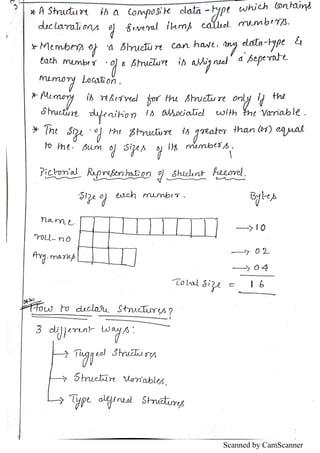 * A Structure is a composite data-type which contains
declarations of several items called members.
* Members of a structure can have any data-type &
each member of a structure is assigned a seperate
memory location.
* Memory is reserved for the structure only if the
structure definition is associated with the variable.
* The size of the structure is greater than (or) equal
to the sum of sizes of its members.
Pictorial Representation of Student Record.
Size of each member. Bytes
name → 10
roll-no → 02
Avg. marks → 04
Total size = 16
How to declare structures?
3 different ways:
→ Tagged Structures
→ Structure variables.
→ Type defined Structures
Scanned by CamScanner